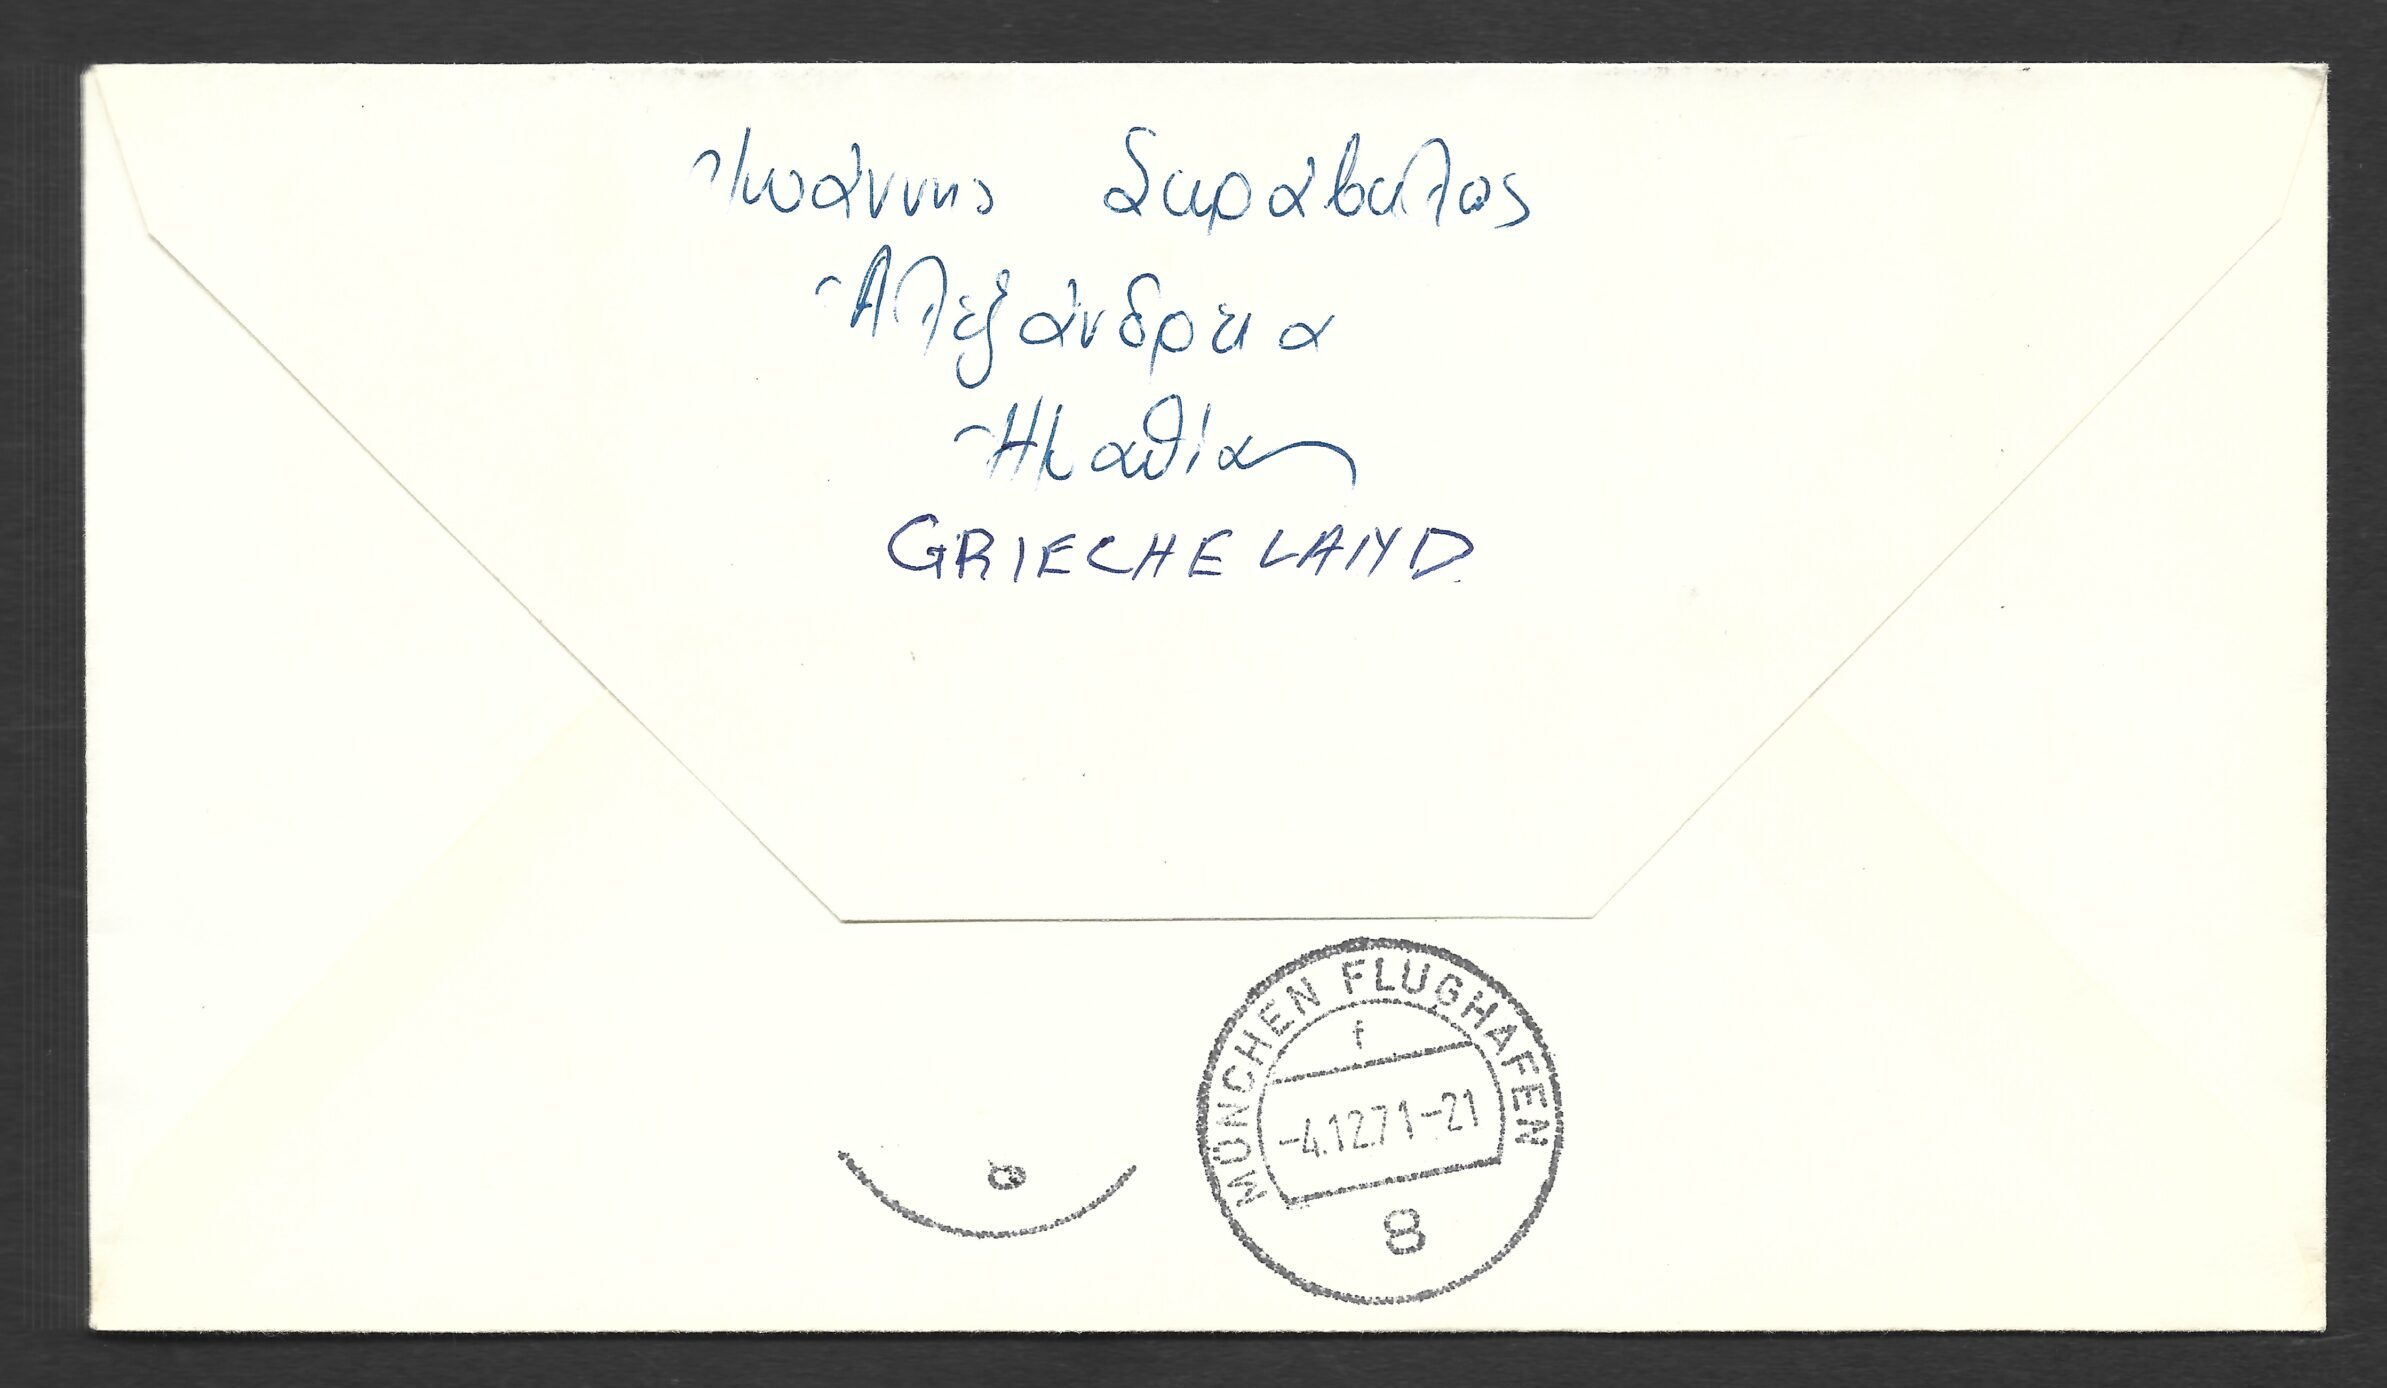 Ἰωάννης Σαράβαλος
Ἀλεξάνδρεια
Ἠμαθία
GRIECHELAND
MÜNCHEN FLUGHAFEN
f
-4.12.71-21
8